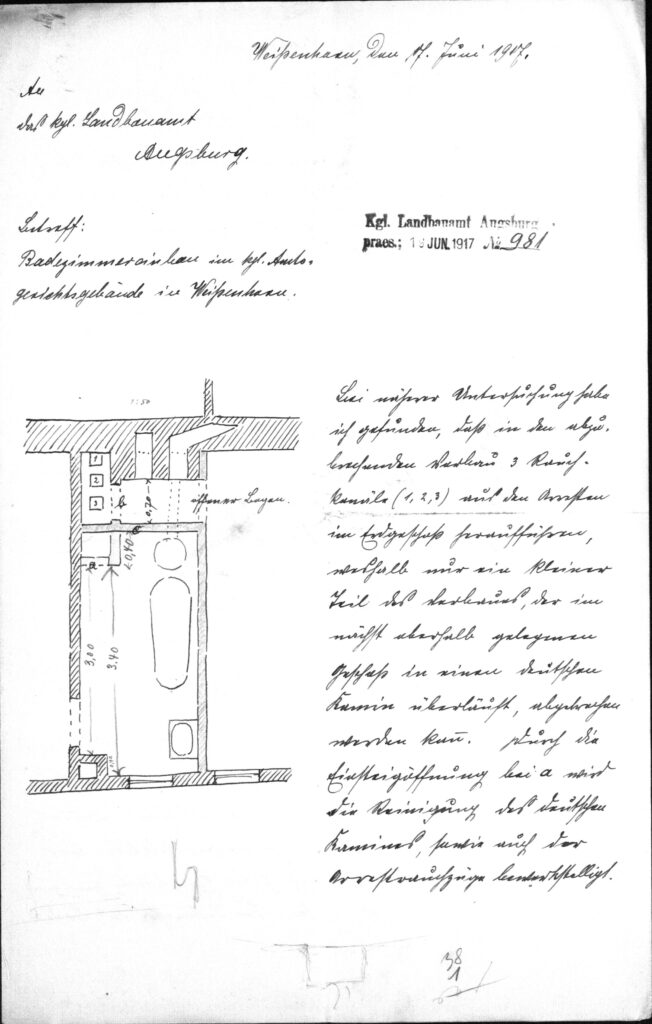 Weißenhorn, den 17. Juni 1917.
An
das kgl. Landbauamt
Augsburg.
Betreff:
Badezimmereinbau im kgl. Amts-
gerichtsgebäude in Weißenhorn.
Kgl. Landbauamt Augsburg
praes.; 19 JUN. 1917 № 981
1:50
1
2
3
b
0,70
offener Bogen.
0,40
a
3,00
3.40
Bei näherer Untersuchung habe
ich gefunden, daß in den abzu-
brechenden Vorbau 3 Rauch-
kanäle (1, 2, 3) aus den Arresten
im Erdgeschoß herauführen,
weshalb nur ein kleiner
Teil des Vorbaues, der im
nächst oberhalb gelegenen
Geschoß in einen deutschen
Kamin überläuft, abgebrochen
werden kann. Durch die
Einsteigöffnung bei a wird
die Reinigung des deutschen
Kamines, sowie auch der
Arrestrauchzüge bewerkstelligt.
38
1